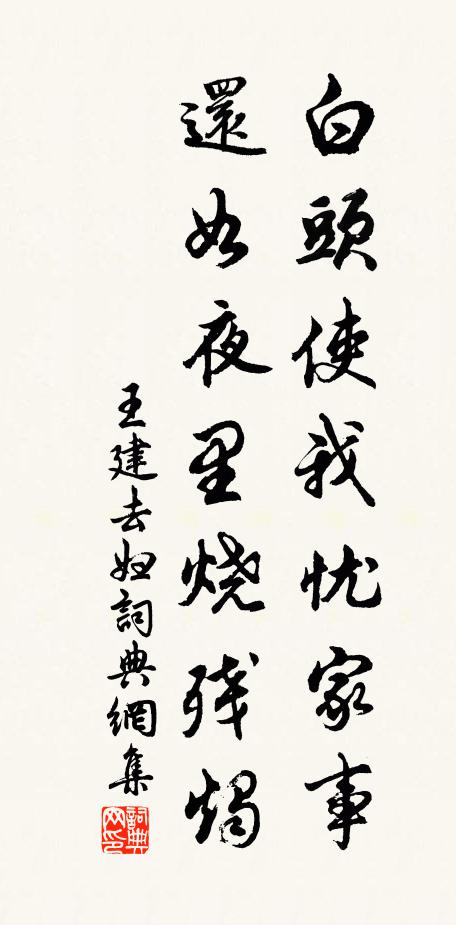 白頭使我忧家事
還如夜里烧残燭
王建去妇詞典網集
詞典網印